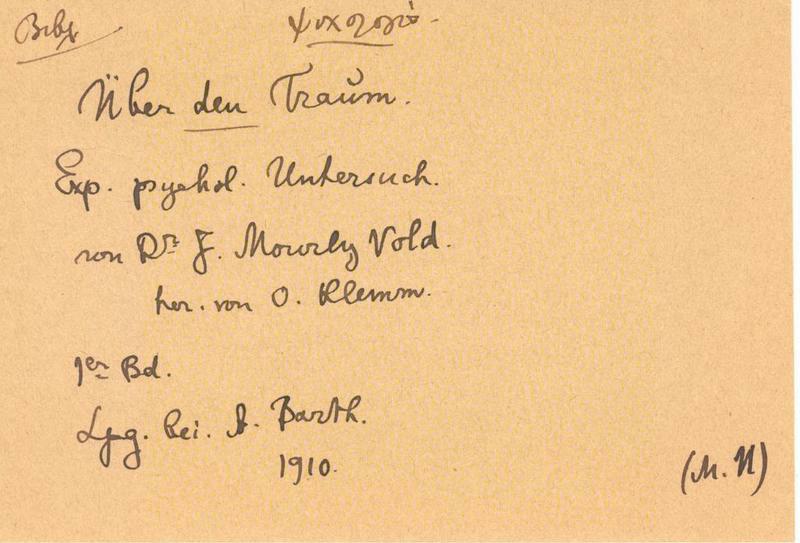 Bibl ψυχολογία
Über den Traum.
Exp. psychol. Untersuch.
von Dr. J. Mourly Vold.
her. von O. Klemm.
1er Bd.
Lpzg. bei. A. Barth.
1910.
(M. N)